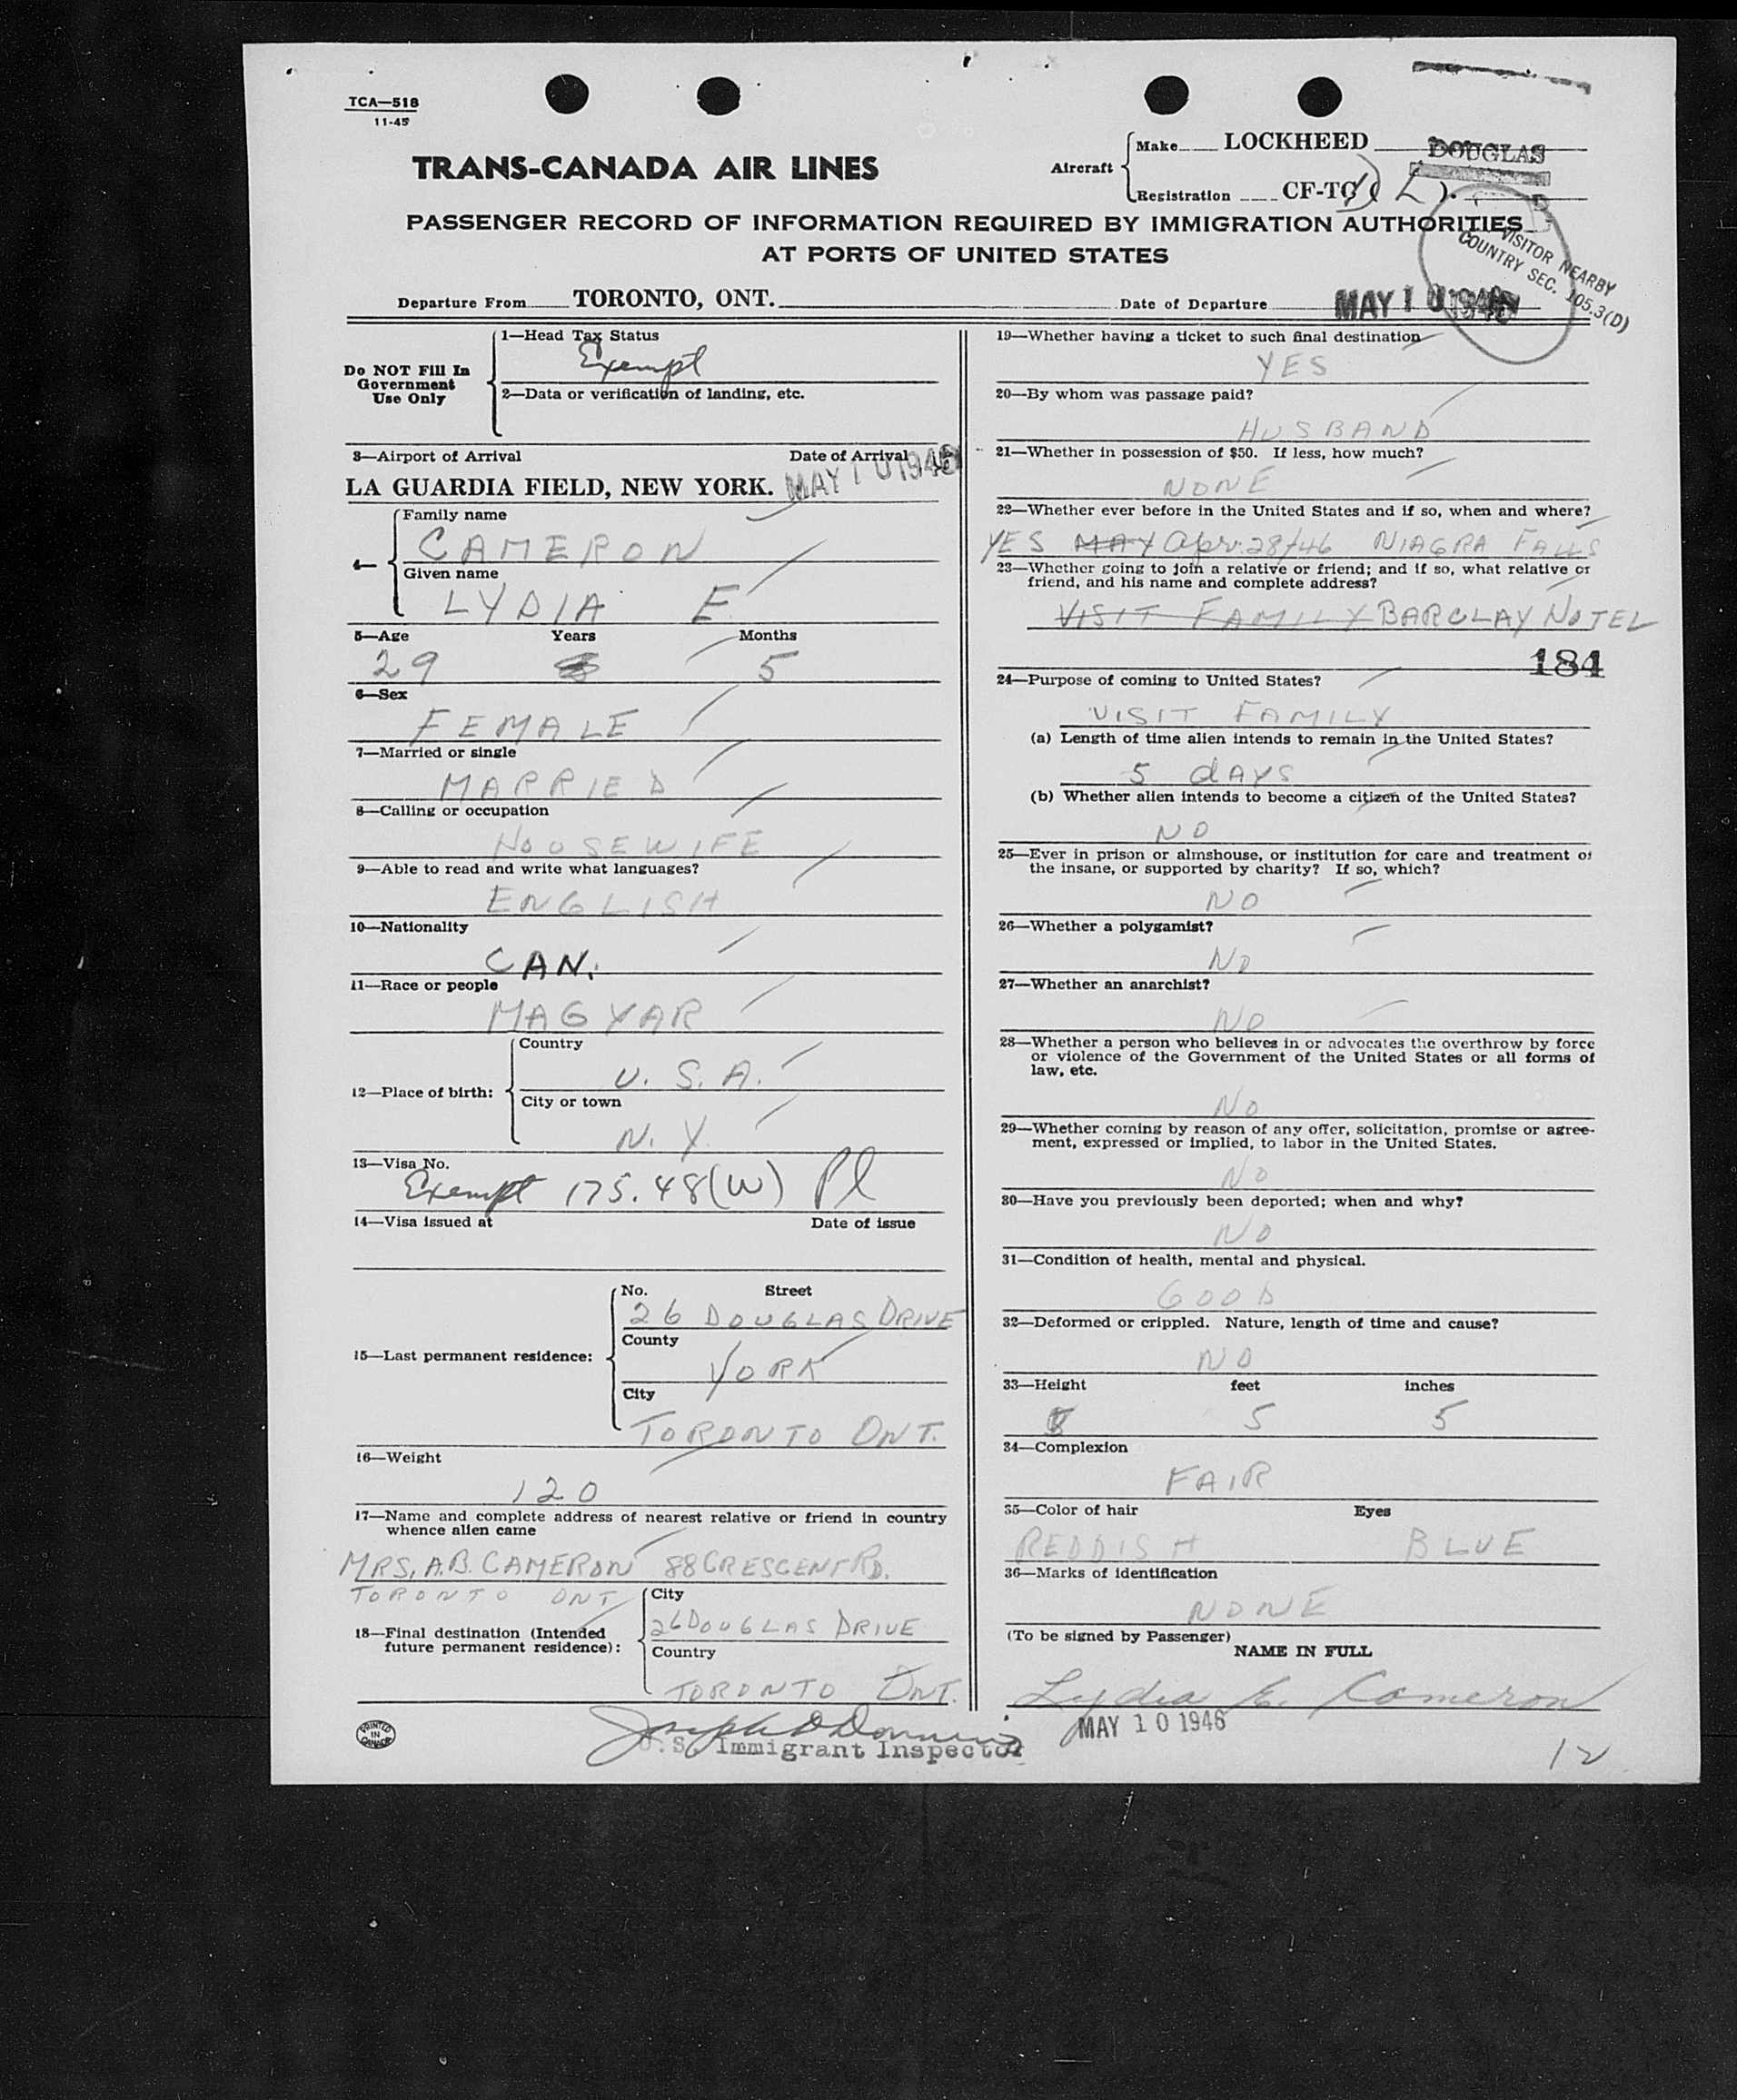 TCA—518
11-45
TRANS-CANADA AIR LINES
Aircraft
Make LOCKHEED DOUGLAS
Registration CF-TC ( L ).
PASSENGER RECORD OF INFORMATION REQUIRED BY IMMIGRATION AUTHORITIES
AT PORTS OF UNITED STATES
VISITOR NEARBY
COUNTRY SEC. 105.3(D)
Departure From TORONTO, ONT. Date of Departure MAY 10 1946
Do NOT Fill In
Government
Use Only
1—Head Tax Status
Exempt
2—Data or verification of landing, etc.
3—Airport of Arrival Date of Arrival
LA GUARDIA FIELD, NEW YORK. MAY 10 1946
4—
Family name
CAMERON
Given name
LYDIA E.
5—Age Years Months
29 5
6—Sex
FEMALE
7—Married or single
MARRIED
8—Calling or occupation
HOUSEWIFE
9—Able to read and write what languages?
ENGLISH
10—Nationality
CAN.
11—Race or people
MAGYAR
12—Place of birth:
Country
U. S. A.
City or town
N. Y.
13—Visa No.
Exempt 175.48(W) Pl
14—Visa issued at Date of issue
15—Last permanent residence:
No. Street
26 DOUGLAS DRIVE
County
YORK
City
TORONTO ONT.
16—Weight
120
17—Name and complete address of nearest relative or friend in country
whence alien came
MRS. A.B. CAMERON 88 CRESCENT RD.
TORONTO ONT
18—Final destination (Intended
future permanent residence):
City
26 DOUGLAS DRIVE
Country
TORONTO ONT.
PRINTED
IN
CANADA
U.S. Immigrant Inspector
19—Whether having a ticket to such final destination
YES
20—By whom was passage paid?
HUSBAND
21—Whether in possession of $50. If less, how much?
NONE
22—Whether ever before in the United States and if so, when and where?
YES MAY Apr. 28/46 NIAGRA FALLS
23—Whether going to join a relative or friend; and if so, what relative or
friend, and his name and complete address?
VISIT FAMILY BARCLAY HOTEL
184
24—Purpose of coming to United States?
VISIT FAMILY
(a) Length of time alien intends to remain in the United States?
5 dAYS
(b) Whether alien intends to become a citizen of the United States?
NO
25—Ever in prison or almshouse, or institution for care and treatment of
the insane, or supported by charity? If so, which?
NO
26—Whether a polygamist?
NO
27—Whether an anarchist?
NO
28—Whether a person who believes in or advocates the overthrow by force
or violence of the Government of the United States or all forms of
law, etc.
NO
29—Whether coming by reason of any offer, solicitation, promise or agree-
ment, expressed or implied, to labor in the United States.
NO
30—Have you previously been deported; when and why?
NO
31—Condition of health, mental and physical.
GOOD
32—Deformed or crippled. Nature, length of time and cause?
NO
33—Height feet inches
5 5
34—Complexion
FAIR
35—Color of hair Eyes
REDDISH BLUE
36—Marks of identification
NONE
(To be signed by Passenger)
NAME IN FULL
Lydia E. Cameron
MAY 10 1946
12